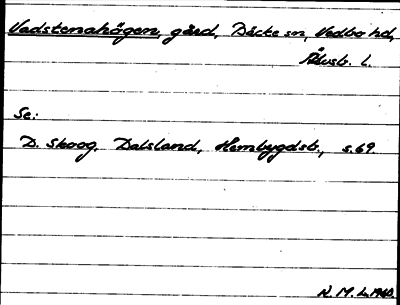 Vadstenahögen, gård, Däcke sn, Vedbo hd,
Älvsb. l.
Se:
D. Skoog, Dalsland, Hembygdsb., s. 69.
N. M. L. 1960.